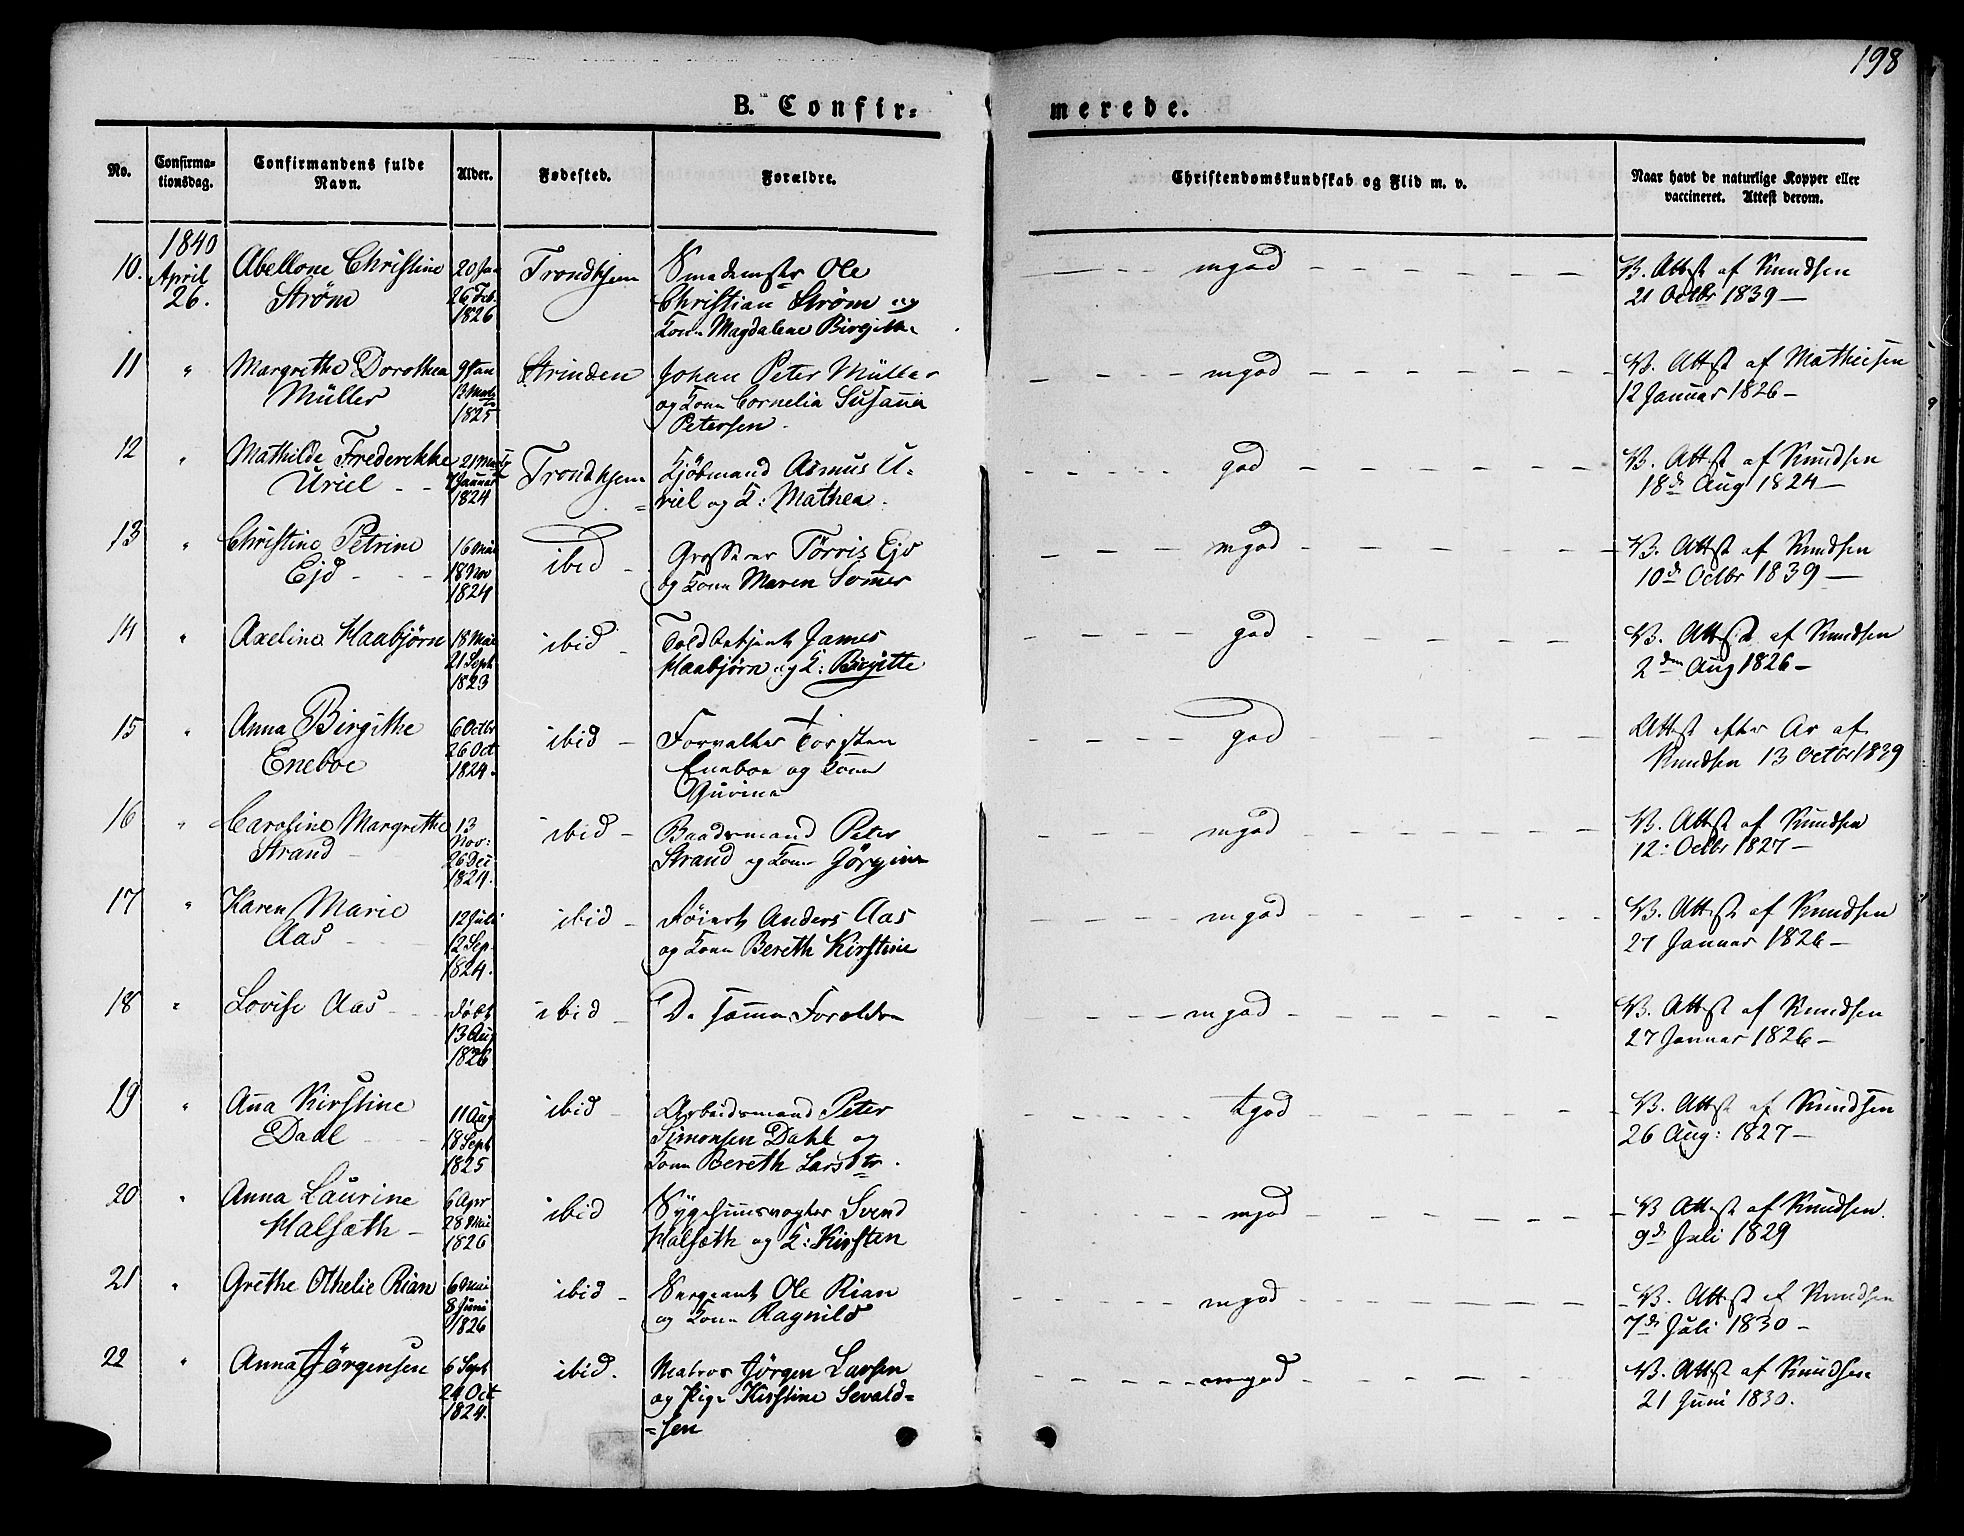 198
B. Confir=
merede.
No.
Confirma-
tionsdag.
Confirmandens fulde
Navn.
Alder.
Fødested.
Forældre.
Christendomskundskab og Flid m. v.
Naar havt de naturlige Kopper eller
vaccineret. Attest derom.
1840
10. April Abellone Christine 20 Jan Trondhjem Smedemster Ole mgod V. Attst af Knudsen
26. Strøm 26 Feb. Christian Strøm og 21 Octbr 1839
1826 Kone Magdalene Birgitte
11 " Margrethe Dorothea 9 Jan Strinden Johan Peter Müller mgod V. Attst af Mathiesen
Müller 13 Marts og Kone Cornelia Susanna 12 Januar 1826
1825 Petersen.
12 " Mathilde Frederekke 21 Trondhjem Kjøbmand Asmus U- god V. Attst af Knudsen
Uriel Januar riel og K: Mathea. 18d Aug 1824
1824
13 " Christine Petrine 16 Mai ibid Grosserer Tørris Ejd mgod V. Attst af Knudsen
Ejd 18 Nov og Kone Maren Somer 10d Octbr 1839
1824
14 " Axeline Haabjørn 18 Mai ibid Toldbetjent James god V. Attst af Knudsen
21 Sept Haabjørn og K: Birgitte 2den Aug 1826
1823
15 " Anna Birgithe 6 Octbr ibid Forvalter Torsten god Attst efter Ar af
Eneboe 26 Oct Eneboe og Kone Knudsen 13 Octbr 1839
1824. Gurina
16 " Caroline Margrethe 13 ibid Baadsmand Peter mgod V. Attst af Knudsen
Strand Nov: Strand og Kone Gørgine 12: Octbr 1827
26 Dec
1824.
17 " Karen Marie 12 Juli ibid Føiert Anders Aas mgod V. Attst af Knudsen
Aas 12 Sep. og Kone Bereth Kirstine 27 Januar 1826
1824.
18 " Lovise Aas døbt ibid De samme Forældre mgod V. Attst af Knudsen
13 Aug 27 Januar 1826
1826
19 " Anna Kirstine 11 Aug ibid Arbeidsmand Peter tgod V. Attst af Knudsen
Daal 18 Sept Simonsen Dahl og 26 Aug: 1827
1825 Kone Bereth Larsdtr.
20 " Anna Laurine 6 Apr ibid Sygehuusvogter Svend mgod V Attst af Knudsen.
Halsæth 28 Mai Halsæth og K: Kirsten 9d Juli 1829
1826
21 " Grethe Othelie Rian 6 Mai ibid Sergeant Ole Rian mgod V. Attst af Knudsen
8 Juni og Kone Ragnild 7d Juli 1830
1826
22 " Anna Jørgensen 6 Sept ibid. Matros Jørgen Larsen mgod V. Attst af Knudsen
24 Oct og Pige Kirstine Sevald= 21 Juni 1830.
1824. =sen